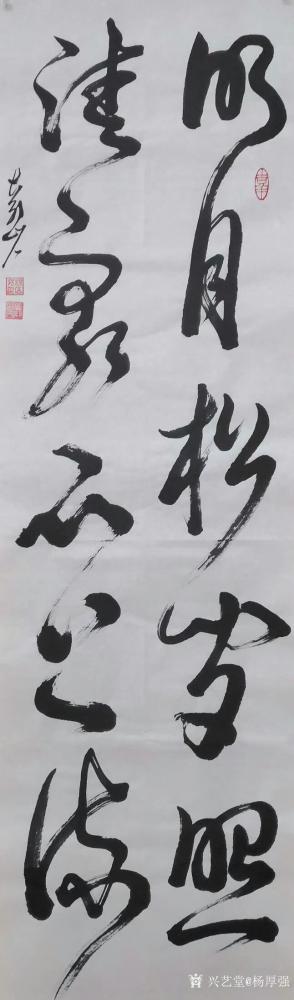 明月松间照
清泉石上流
兴艺堂@杨厚强